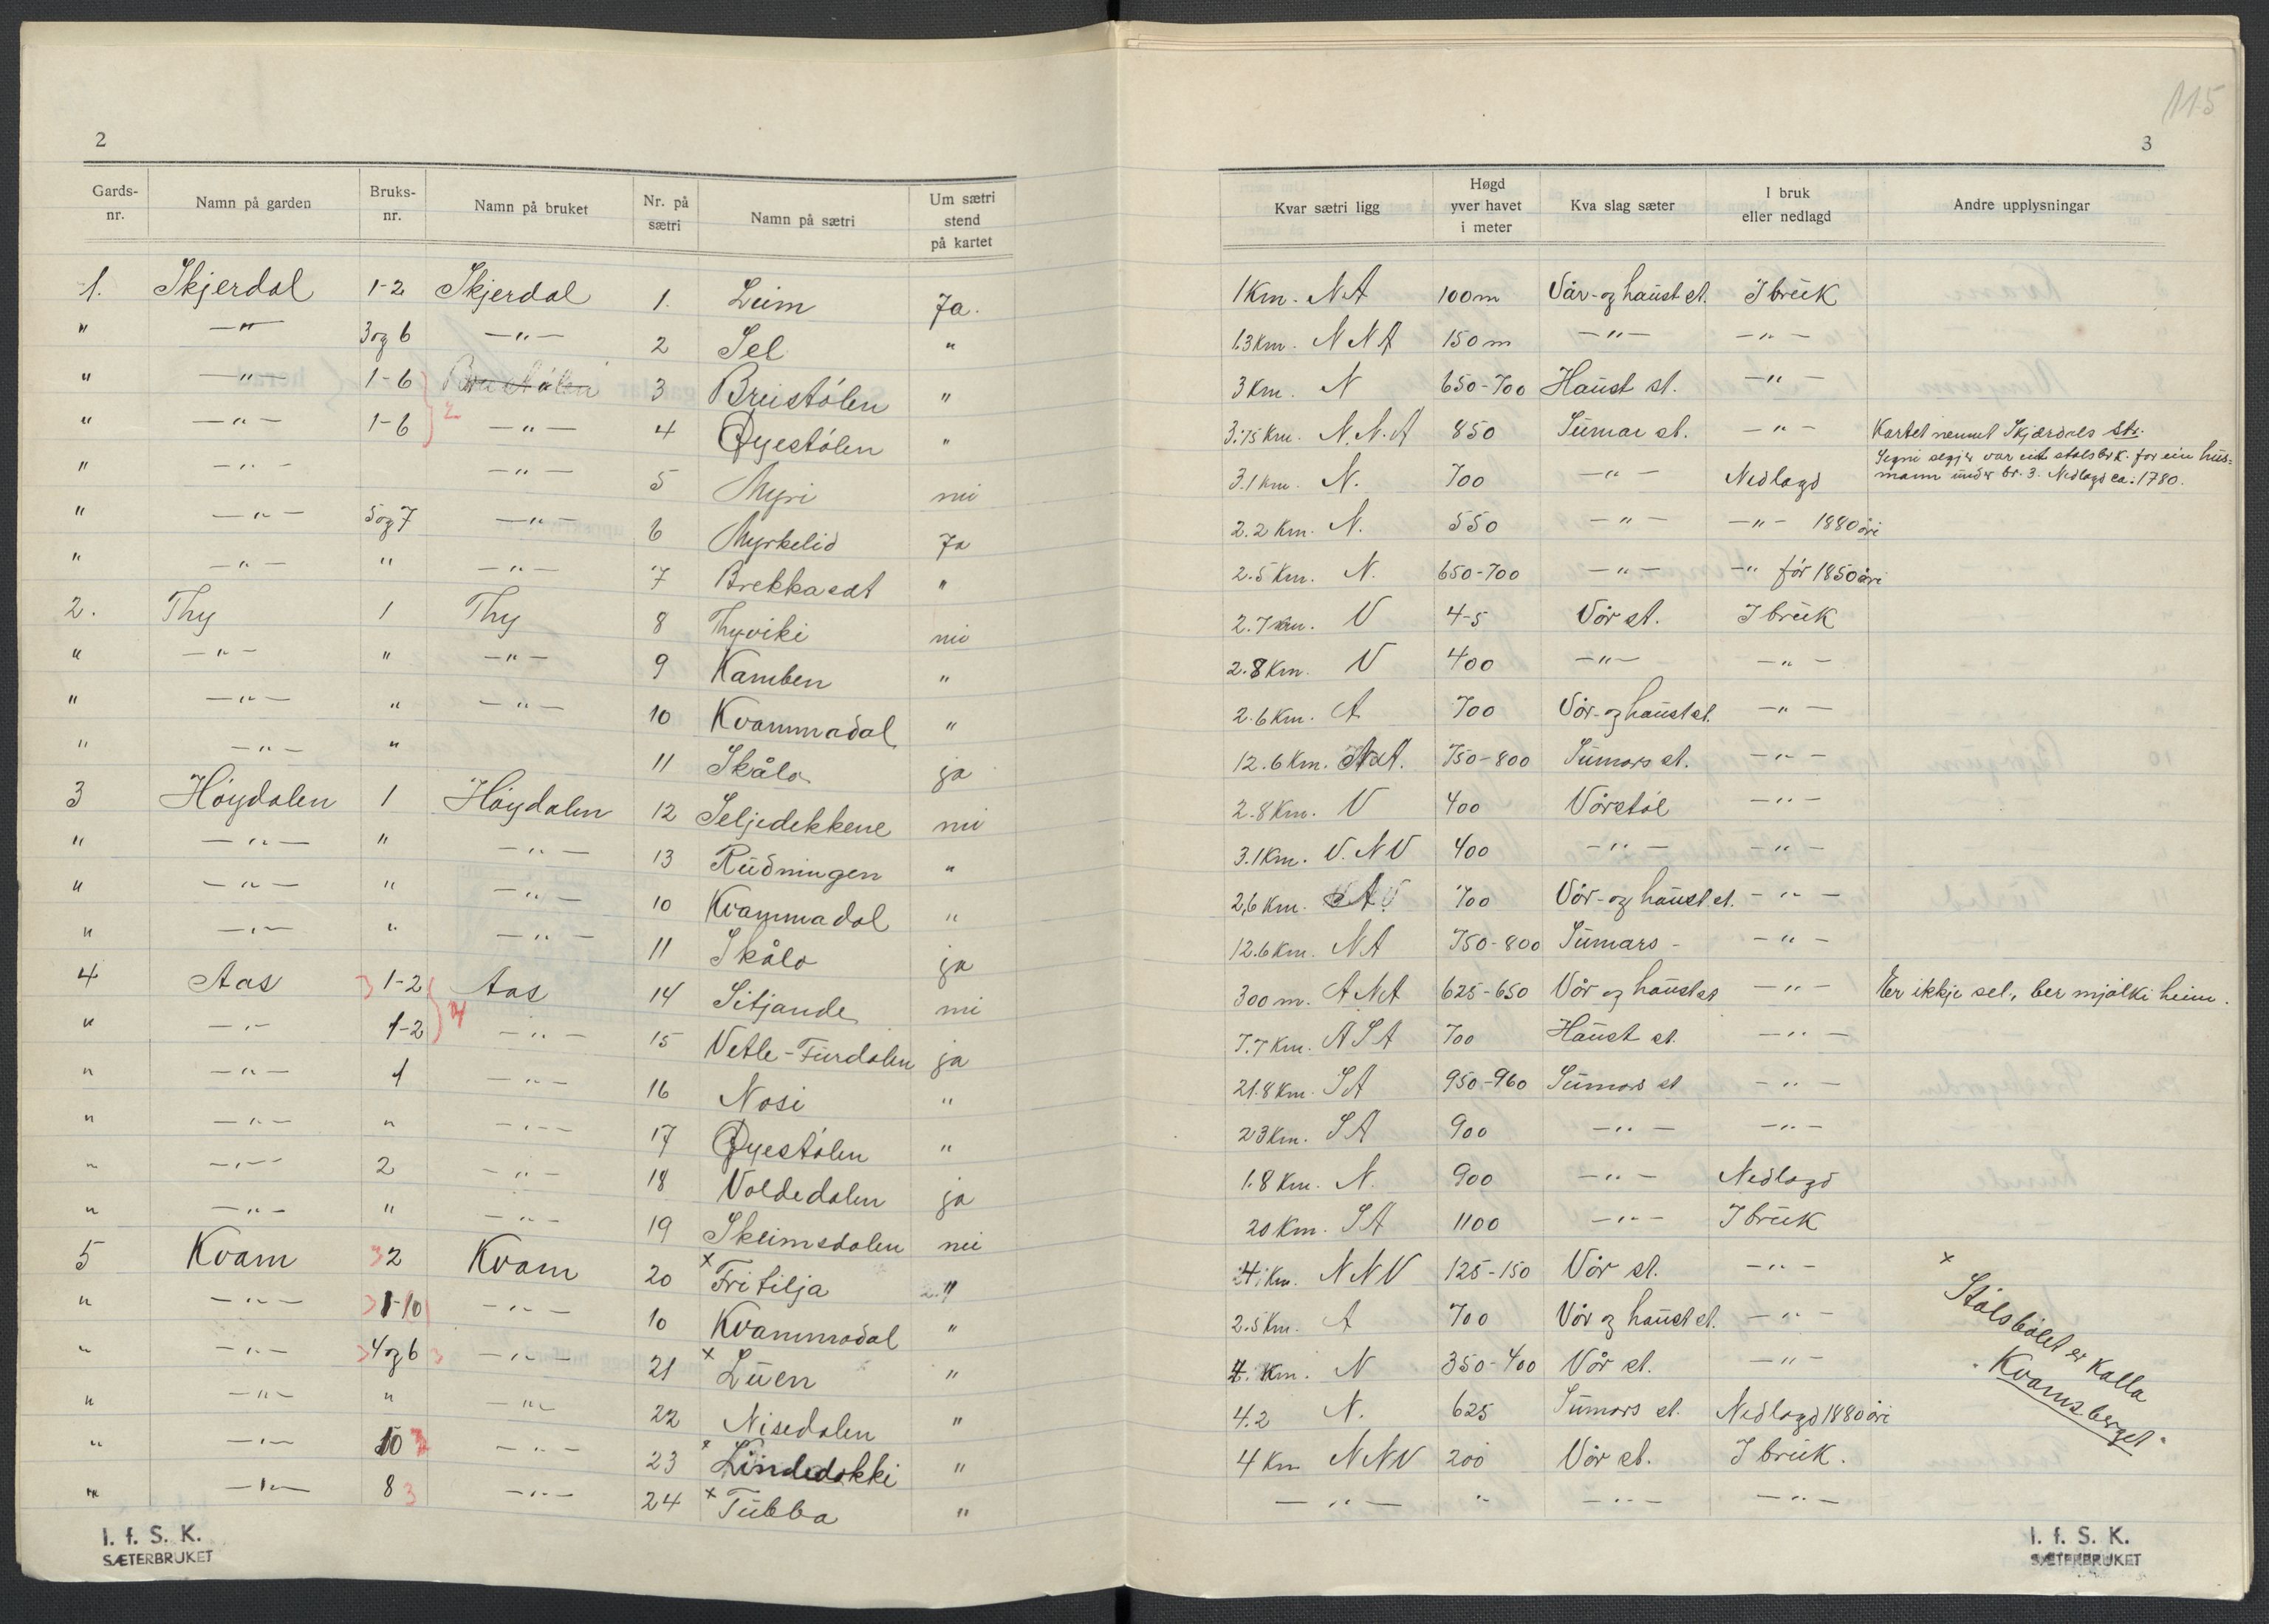 115
2
3
Gards-nr. | Namn på garden | Bruks-nr. | Namn på bruket | Nr. på sætri | Namn på sætri | Um sætri stend på kartet | Kvar sætri ligg | Høgd yver havet i meter | Kva slag sæter | I bruk eller nedlagd | Andre upplysningar
1. | Skjerdal | 1-2 | Skjerdal | 1. | Leim | Ja. | 1 Km. N A | 100 m | Vår- og haust st. | I bruk
" | —"— | 3 og 6 | —"— | 2 | Sel | " | 1.3 Km. N N A | 150 m | —"— | —"—
" | —"— | 1-6 | | 3 | Breistólen | " | 3 Km. N | 650-700 | Haust st. | —"—
" | —"— | 1-6 | —"— | 4 | Øyestólen | " | 3.75 Km. N. N. A | 850 | Sumar st. | —"— | Kartet nemnt Skjærdals str.
" | —"— | | —"— | 5 | Myri | nei | 3.1 Km. N. | 700 | —"— | Nedlagd | Segni segjer var eit stolsbrk. for ein hus=mann under br. 3. Nedlagd ca: 1780.
" | —"— | 5 og 7 | —"— | 6 | Myrkelid | Ja | 2.2 Km. N. | 550 | —"— | —"— 1880 åri
" | —"— | " | —"— | 7 | Brekkasat | " | 2.5 Km. N. | 650-700 | —"— | —" før 1850 åri
2. | Thy | 1 | Thy | 8 | Thyviki | nei | 2.7 Km. V | 4-5 | Vår st. | I bruk
" | —"— | " | —"— | 9 | Kamben | " | 2.8 Km. V | 400 | —"— | —"—
" | —"— | " | —"— | 10 | Kvammadal | " | 2.6 Km. A | 700 | Vår- og haust st. | —"—
" | —"— | " | | 11 | Skålo | ja | 12.6 Km. N A. | 750-800 | Sumars st. | —"—
3 | Høydalen | 1 | Høydalen | 12 | Seljedekkene | nei | 2.8 Km. V | 400 | Vårstøl | —"—
" | —"— | " | —"— | 13 | Rudningen | " | 3.1 Km. V. N V | 400 | —"— | —"—
" | —"— | " | —"— | 10 | Kvammadal | " | 2,6 Km. A | 700 | Vår- og haust st. | —"—
" | —"— | " | —"— | 11 | Skålo | ja | 12.6 Km. N A | 750-800 | Sumars - | —"—
4 | Aas | 1-2 | Aas | 14 | Sitjande | nei | 300 m. A N A | 625-650 | Vår og haust st | —"— | Er ikkje sel, ber mjølki heim.
" | —"— | 1-2 | —"— | 15 | Vetle-Furdalen | ja | 7.7 Km. A S A | 700 | Haust st. | —"—
" | —"— | 1 | —"— | 16 | Nosi | " | 21.8 Km. S A | 950-960 | Sumars st | —"—
" | —"— | " | —"— | 17 | Øyestólen | " | 23 Km. S A | 900 | —"— | —"—
" | —"— | 2 | —"— | 18 | Voldedalen | ja | 1.8 Km. N. | 900 | —"— | Nedlagd
" | —"— | " | —"— | 19 | Skeimsdalen | nei | 20 Km. S A | 1100 | —"— | I bruk
5 | Kvam | 2 | Kvam | 20 | × Fritilja | " | 4 Km. N N V | 125-150 | Vår st. | —"— | × Stølsbølet er kalla "Kvamsberget"
" | —"— | 1-10 | —"— | 10 | Kvammadal | " | 2.5 Km. A | 700 | Vår og haust st. | —"—
" | —"— | 4 og 6 | —"— | 21 | × Luen | " | 4. Km. N | 350-400 | Vår st. | —"—
" | —"— | " | —"— | 22 | Nisedalen | " | 4.2 N. | 625 | Sumars st. | Nedlagd 1880 åri
" | —"— | 10 | —"— | 23 | × Lindedokki | " | 4 Km N N V | 200 | Vår st. | I bruk.
" | —"— | 8 | —"— | 24 | × Tubba | " | —"— | " | —"— | —"—
I. f. S. K.
SÆTERBRUKET
I. f. S. K.
SÆTERBRUKET